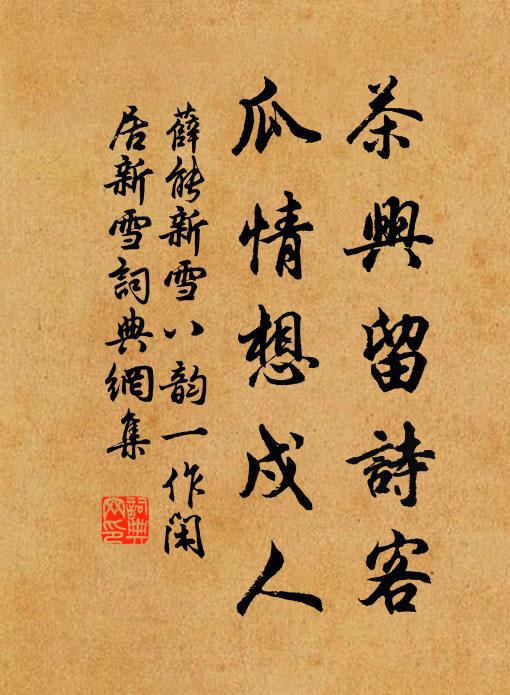 茶興留詩客
瓜情想戍人
薛能新雪八韵一作閑
居新雪詞典網集
詞典
网印